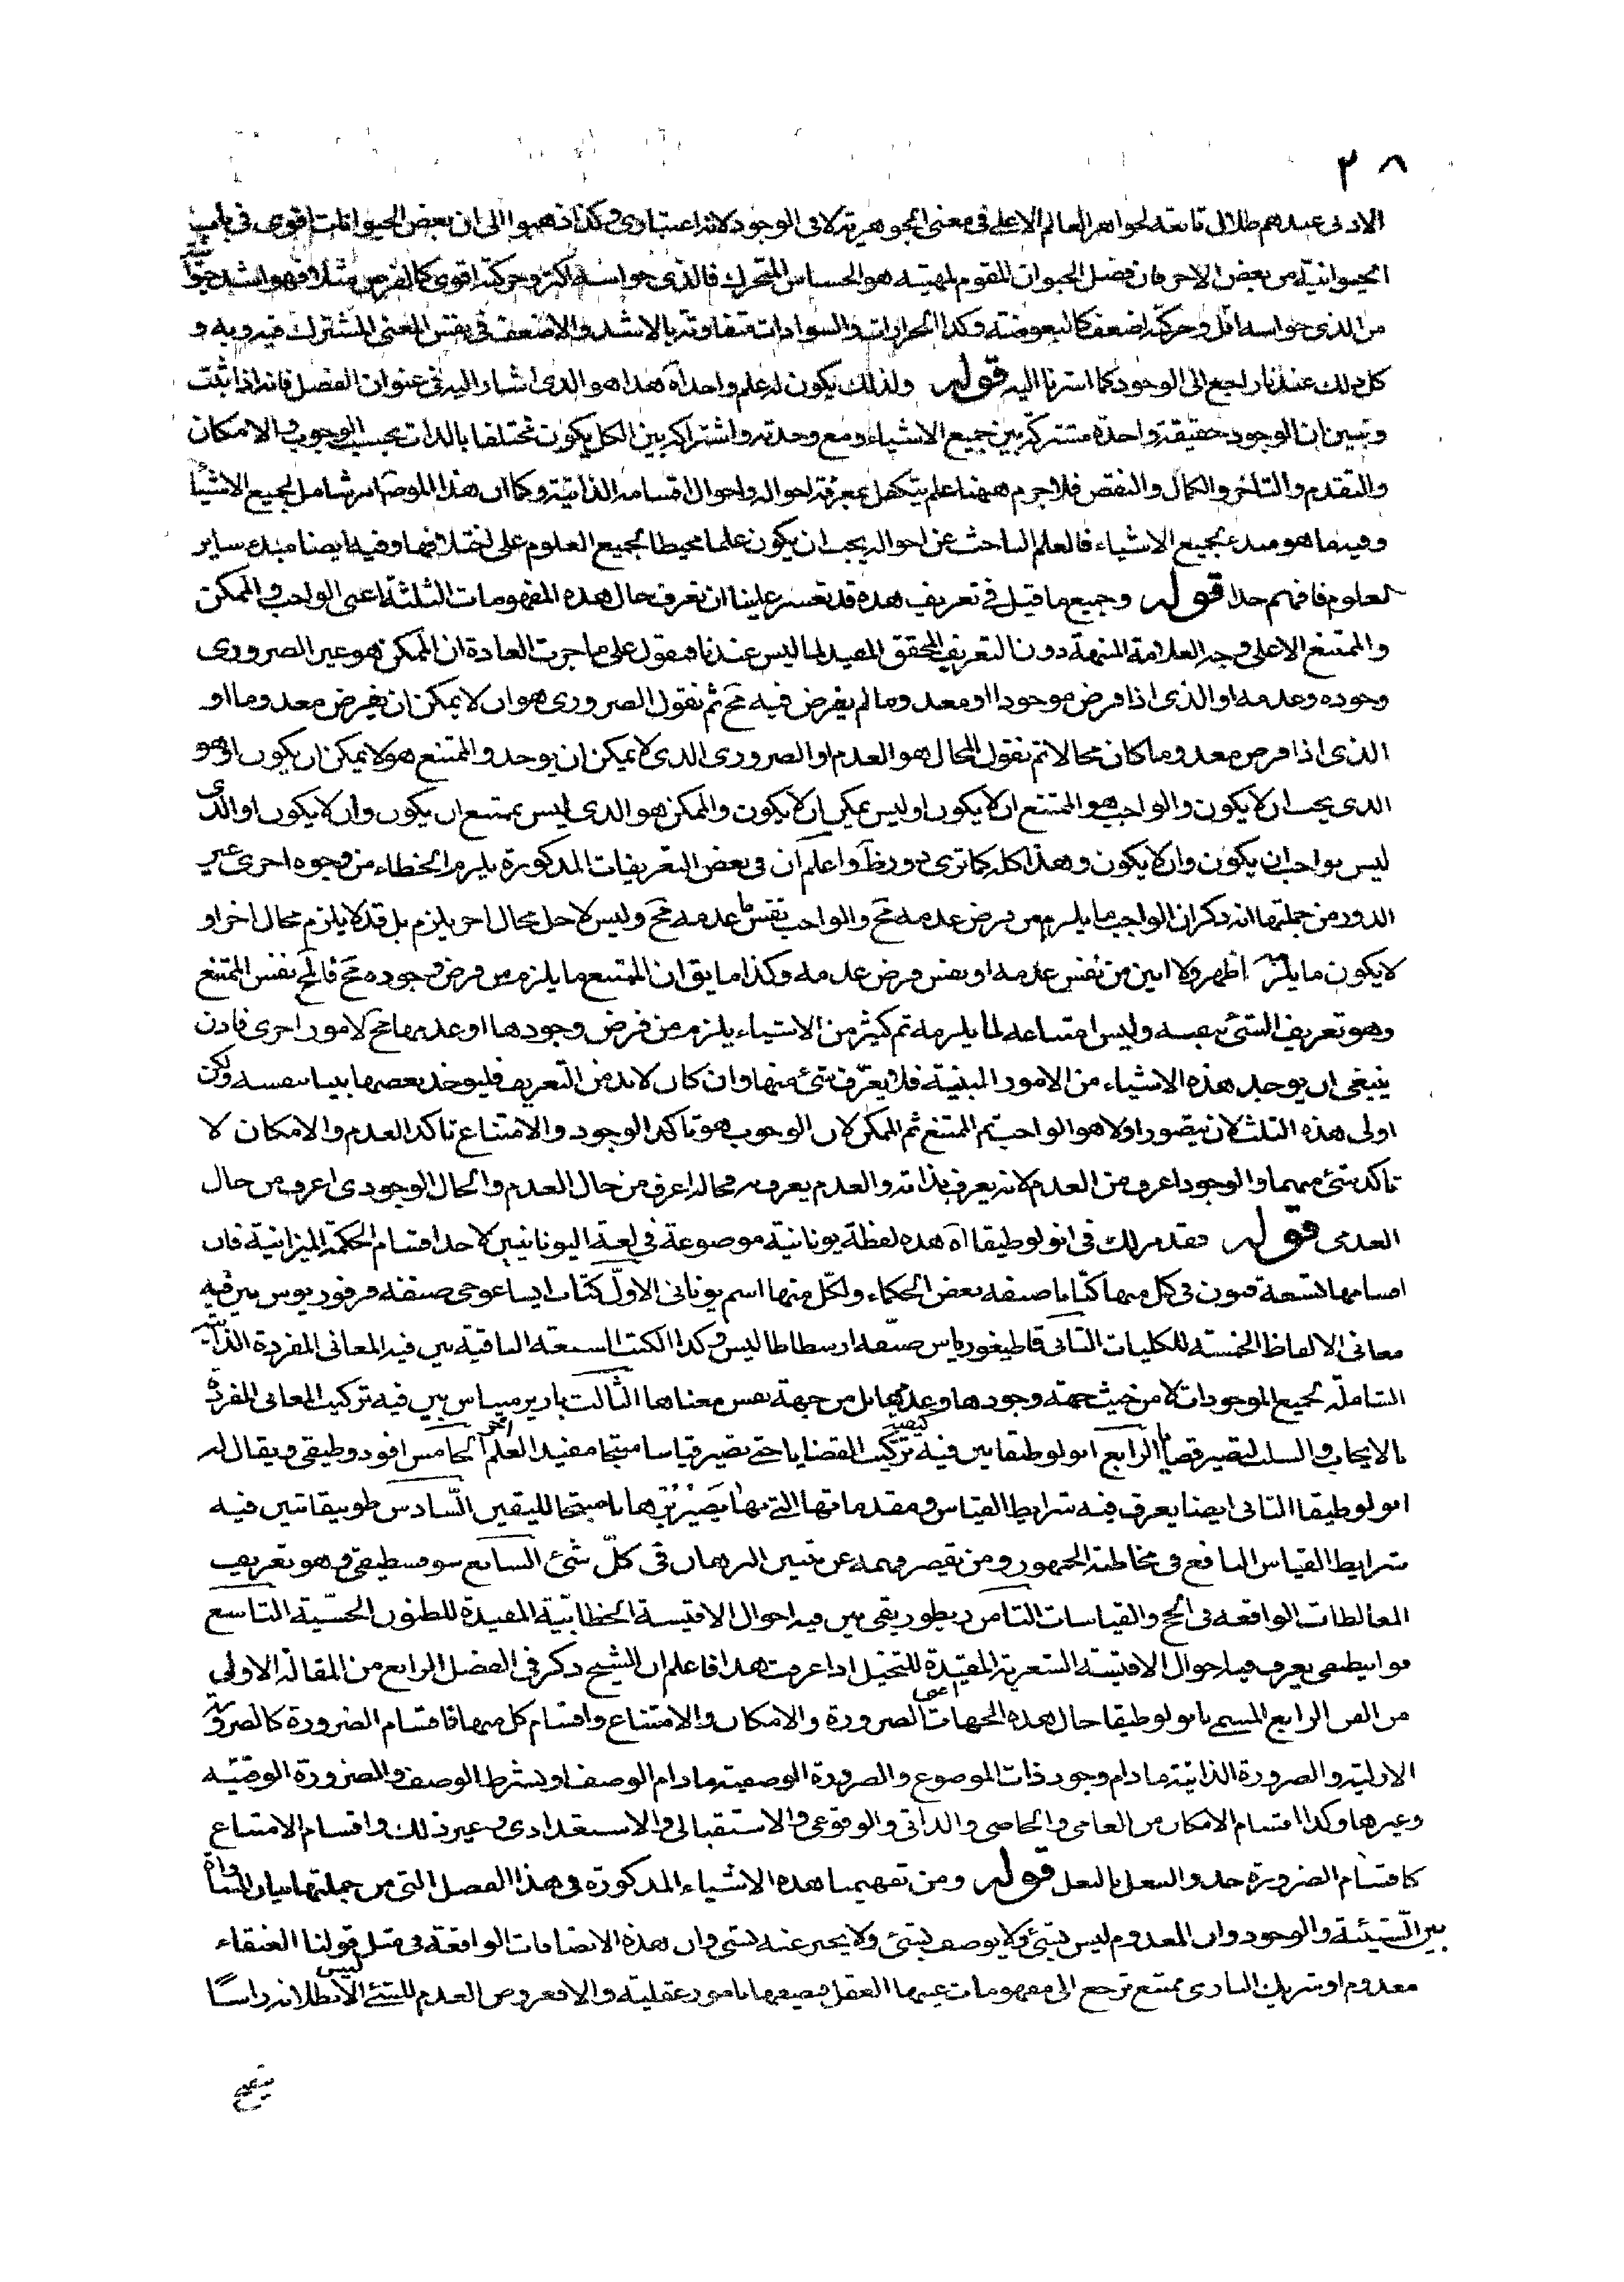 ٢٨
الادنى عندهم ظلال تابعة لجواهر العالم الاعلى فى معنى الجوهرية لا فى الوجود لانه اعتبارى وكذا ذهبوا الى ان بعض الحيوانات اقوى فى باب
الحيوانية من بعض الاخر فان فصل الحيوان المقوم لمهيته هو الحساس المتحرك فالذى حواسه اكثر وحركته اقوى كالفرس مثلا فهو اشد حيوانية
من الذى حواسه اقل وحركته اضعف كالبعوضة وكذا الحرارات والسوادات متفاوتة بالاشد والاضعف فى نفس المعنى المشترك فيه وبه و
كل ذلك عندنا راجع الى الوجود كما اشرنا اليه قوله ولذلك يكون له علم واحد آه هذا هو الذى اشار اليه فى عنوان الفصل فانه اذا ثبت
وتبين ان الوجود حقيقة واحدة مشتركة بين جميع الاشياء ومع وحدته واشتراكه بين الكل يكون مختلفا بالذات بحسب الوجوب والامكان
والتقدم والتاخر والكمال والنقص فلاجرم ههنا علم يتكفل بمعرفة احواله واحوال اقسامه الذاتية وكما ان هذا الموضوع امر شامل لجميع الاشياء
وفيه ما هو مبدء لجميع الاشياء فالعلم الباحث عن احواله يجب ان يكون علما محيطا بجميع العلوم على اختلافها وفيه ايضا مبدء ساير
العلوم فافهم جدا قوله وجميع ما قيل فى تعريف هذه قد تعسر علينا ان نعرف حال هذه المفهومات الثلثة اعنى الواجب والممكن
والممتنع الا على وجه العلامة المنبهة دون التعريف المحقق المفيد لما ليس عندنا فنقول على ما جرت العادة ان الممكن هو غير الضرورى
وجوده وعدمه او الذى اذا فرض موجودا او معدوما لم يفرض فيه مح ثم نقول الضرورى هو ان لا يمكن ان يفرض معدوما او
الذى اذا فرض معدوما كان محالا ثم نقول المحال هو العدم او الضرورى الذى لا يمكن ان يوجد والممتنع هو لا يمكن ان يكون او هو
الذى يجب ان لا يكون والواجب هو الممتنع ان لا يكون او ليس بممكن ان لا يكون والممكن هو الذى ليس بممتنع ان يكون وان لا يكون او الذى
ليس بواجب ان يكون وان لا يكون وهذا كله كما ترى دور ظ واعلم ان فى بعض التعريفات المذكورة يلزم الخطاء من وجوه اخرى غير
الدور من جملتها انه ذكر ان الواجب ما يلزم من فرض عدمه مح والواجب نفس عدمه مح وليس لاجل محال اخر يلزم بل قد لا يلزم محال اخر او
لا يكون ما يلزم اظهر ولا ابين من نفس عدمه او نفس فرض عدمه وكذا ما يق ان الممتنع ما يلزم من فرض وجوده مح فالمح نفس الممتنع
وهو تعريف الشئ بنفسه وليس امتناعه لما يلزمه ثم كثير من الاشياء يلزم من فرض وجودها او عدمها مح لامور اخرى فاذن
ينبغى ان يوجد هذه الاشياء من الامور البينة فلا يعرف شئ منها وان كان لابد من التعريف فليوخذ بعضها بينا بنفسه ولكن
اولى هذه الثلث لان يتصور اولا هو الواجب ثم الممتنع ثم الممكن لان الوجوب هو تاكد الوجود والامتناع تاكد العدم والامكان لا
تاكد شئ منهما والوجود اعرف من العدم لانه يعرف بذاته والعدم يعرف به فحاله اعرف من حال العدم والحال الوجودى اعرف من حال
العدمى قوله فقد مر لك فى انولوطيقا آه هذه لفظة يونانية موضوعة فى لغة اليونانيين لاحد اقسام الحكمة الميزانية فان
اقسامها تسعة فنون فى كل منها كتابا صنفه بعض الحكماء ولكل منها اسم يونانى الاول كتاب ايساغوجى صنفه فرفوريوس بين فيه
معانى الالفاظ الخمسة للكليات الثانى قاطيغورياس صنفه ارسطاطاليس وكذا الكتب السبعة الباقية بين فيه المعانى المفردة الذاتية
الشاملة لجميع الموجودات لا من حيث جهة وجودها وعدمها بل من جهة نفس معناها الثالث باريرميناس بين فيه تركيب المعانى المفردة
بالايجاب والسلب لتصير قضايا الرابع انولوطيقا بين فيه كيفية تركيب القضايا حتى تصير قياسا منتجا مفيد العلم الخامس افودوطيقى ويقال له
انولوطيقا الثانى ايضا يعرف فيه شرايط القياس ومقدماتها التى بها يصير برهانا منتجا لليقين السادس طوبيقا تبين فيه
شرايط القياس النافع فى مخاطبة الجمهور ومن يقصر فهمه عن تبيين البرهان فى كل شئ السابع سوفسطيقى وهو تعريف
المغالطات الواقعة فى الحج والقياسات الثامن ريطوريقى بين فيه احوال الاقيسة الخطابية المفيدة للظنون الحسية التاسع
فوانيطيقى يعرف فيه احوال الاقيسة الشعرية المفيدة للتخيل اذا عرفت هذا فاعلم ان الشيخ ذكر فى الفصل الرابع من المقالة الاولى
من الفن الرابع المسمى بانولوطيقا حال هذه الجهات اعنى الضرورة والامكان والامتناع واقسام كل منها فاقسام الضرورة كالضرورة
الازلية والضرورة الذاتية مادام وجود ذات الموضوع والضرورة الوصفية مادام الوصف او بشرط الوصف والضرورة الوقتية
وغيرها وكذا اقسام الامكان من العامى والخاصى والذاتى والوقوعى والاستقبالى والاستعدادى وغير ذلك واقسام الامتناع
كاقسام الضرورة حذو النعل بالنعل قوله ومن تفهيمنا هذه الاشياء المذكورة فى هذا الفصل التى من جملتها بيان المساواة
بين الشيئية والوجود وان المعدوم ليس بشئ ولا يوصف بشئ ولا يخبر عنه بشئ وان هذه الاتصافات الواقعة فى مثل قولنا العنقاء
معدوم او شريك البارى ممتنع ترجع الى مفهومات عينها العقل فيصفها بامور عقلية والا فعروض العدم للشئ ليس الا بطلانه راسا